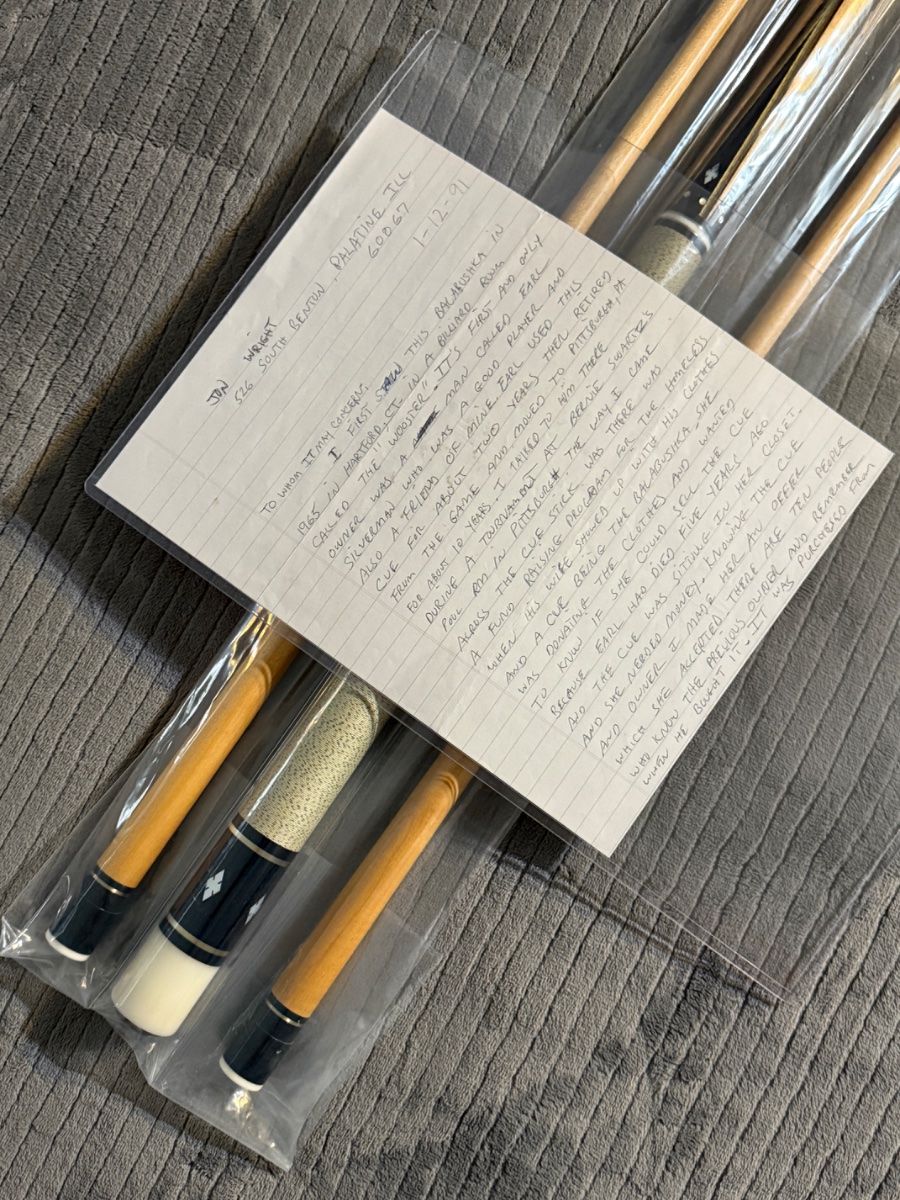 JON WRIGHT
526 SOUTH BENTON, PALATINE ILL
60067
1-12-91
TO WHOM IT MAY CONCERN;
I FIRST SAW THIS BALABUSHKA IN
1965 IN HARTFORD, CT. IN A BILLIARD ROOM
CALLED THE "WOOSTER". IT'S FIRST AND ONLY
OWNER WAS A MAN CALLED EARL
SILVERMAN WHO WAS A GOOD PLAYER AND
ALSO A FRIEND OF MINE. EARL USED THIS
CUE FOR ABOUT TWO YEARS THEN RETIRED
FROM THE GAME AND MOVED TO PITTSBURGH, PA.
FOR ABOUT 10 YEARS. I TALKED TO HIM THERE
DURING A TOURNAMENT AT BERNIE SWARTZ'S
POOL RM IN PITTSBURGH. THE WAY I CAME
ACROSS THE CUE STICK WAS THERE WAS
A FUND RAISING PROGRAM FOR THE HOMELESS
WHEN HIS WIFE SHOWED UP WITH HIS CLOTHES
AND A CUE BEING THE BALABUSHKA. SHE
WAS DONATING THE CLOTHES AND WANTED
TO KNOW IF SHE COULD SELL THE CUE
BECAUSE EARL HAD DIED FIVE YEARS AGO
AND THE CUE WAS SITTING IN HER CLOSET.
AND SHE NEEDED MONEY. KNOWING THE CUE
AND OWNER I MADE HER AN OFFER
WHICH SHE ACCEPTED. THERE ARE TEN PEOPLE
WHO KNOW THE PREVIOUS OWNER AND REMEMBER
WHEN HE BOUGHT IT. IT WAS PURCHASED FROM